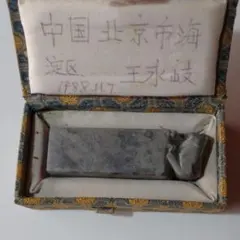 中国北京市海
淀区 王永岐
1988.11.7